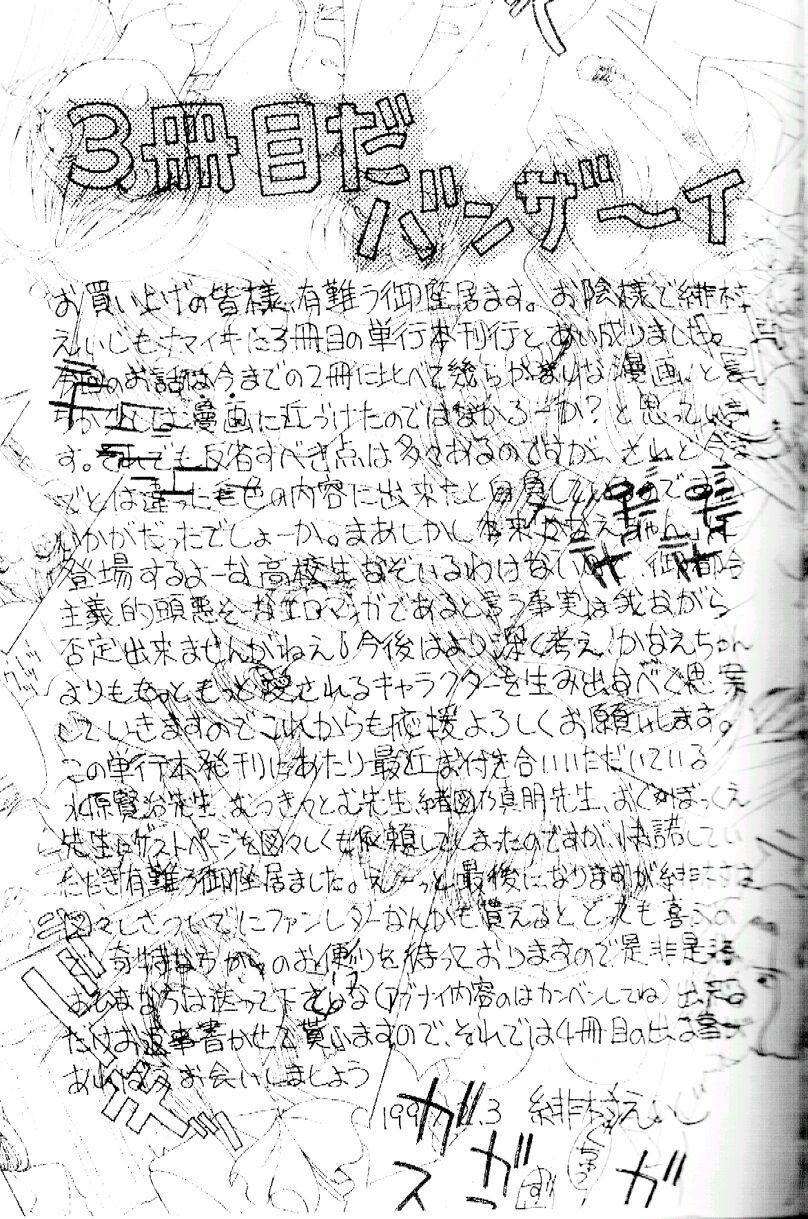 3冊目だ
バンザ〜イ
お買い上げの皆様、有難う御座居ます。お陰様で緋村
えいじもナマイキに3冊目の単行本刊行とあい成りました。
のお話は今までの2冊に比べて幾らかまともな漫画、と言
漫画に近づけたのではなかろーか?と思っていま
す。それでも反省すべき点は多々あるのですが、それでも今ま
でとは違った色の内容に出来たと自負している
いかがだったでしょーか。まあしかし本来かなえちゃんに
登場するよーな高校生なぞいるわけない 御都合
主義的頭悪そーなエロマンガであると言う事実は我ながら
否定出来ませんがねえ。今後はより深く考え!かなえちゃん
よりももっともっと愛されるキャラクターを生み出すべく思案
していきますのでこれからも応援よろしくお願いします。
この単行本発刊にあたり最近お付き合いいただいている
水原賢治先生、むつきつとむ先生、緒図乃真朋先生、おぐぼっくえ
先生にゲストページを図々しくも依頼してしまったのですが、快諾してい
ただき有難う御座居ました。え〜っと最後になりますが緋村は
図々しさついでにファンレターなんかも貰えるととっても喜ぶの
で奇特な方からのお便りを待っておりますので是非是非
おひまな方は送って下さいな(アブナイ内容のはカンベンしてね)出来る
だけお返事書かせて貰いますので、それでは4冊目の出る事が
あればまたお会いしましょう
緋村えいじ
ガ
ガ
ガ
ス